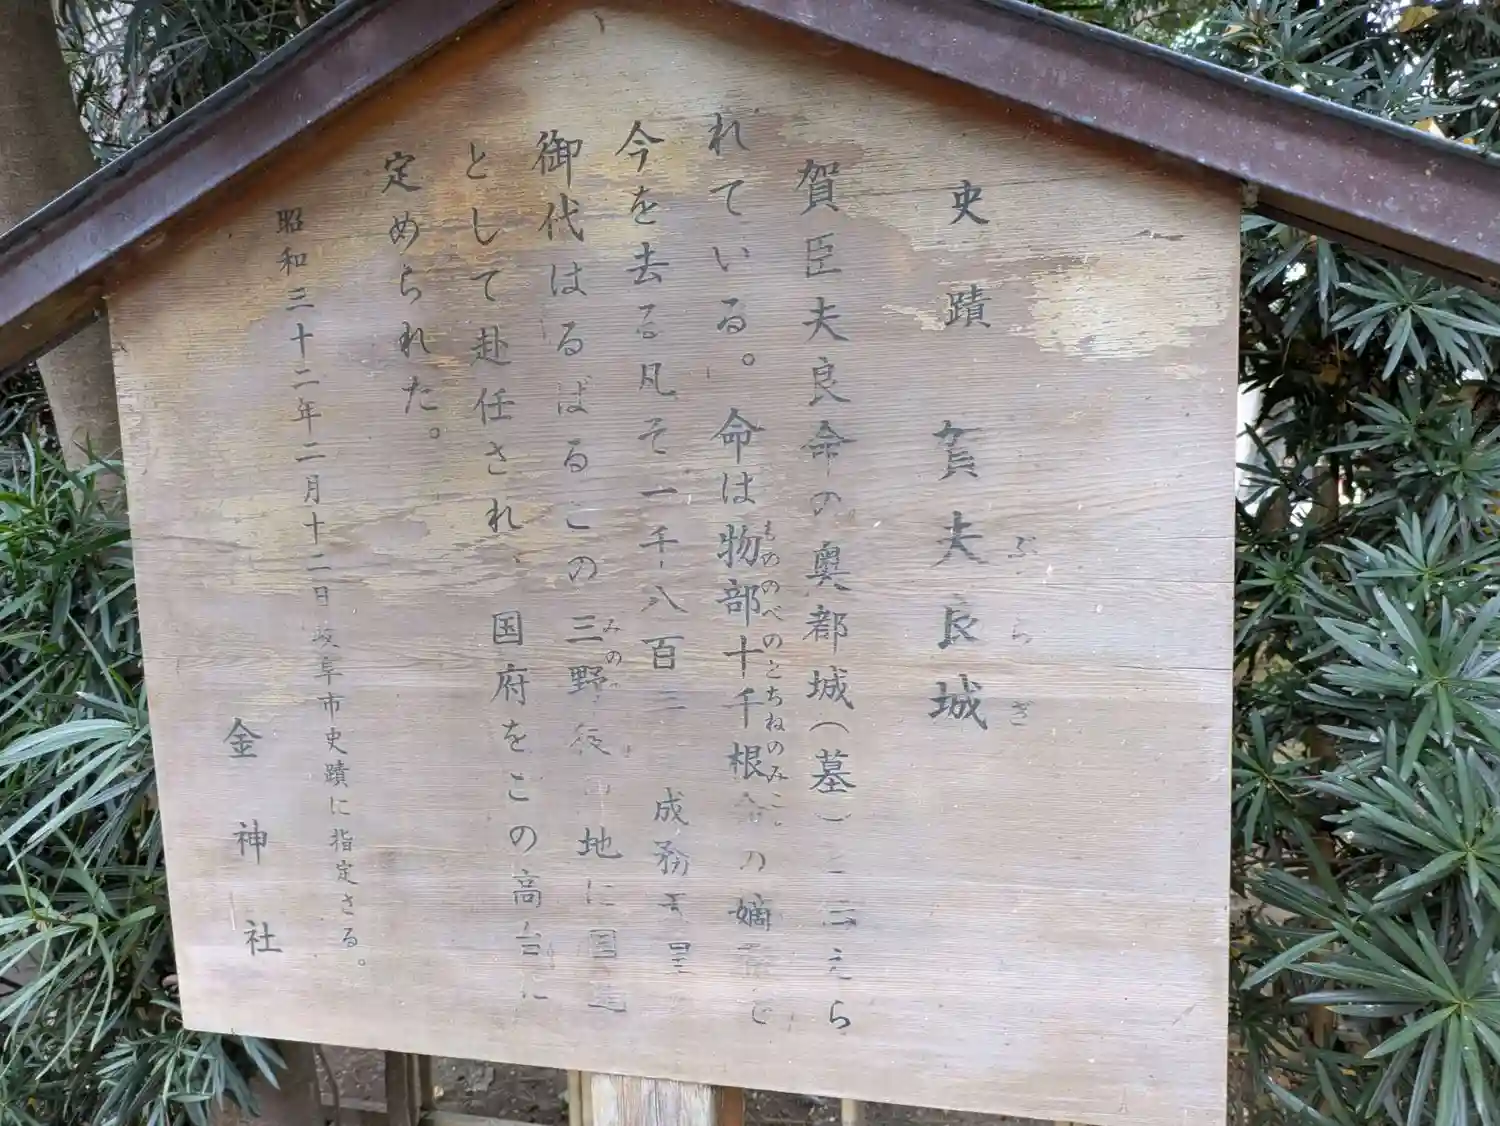 史蹟 賀夫良城
ぶらぎ
賀臣夫良命の奥都城（墓）と云えら
れている。命は物部十千根命の嫡
もののべのとちねのみこ
今を去る凡そ一千八百三 成務天皇
御代はるばるこの三野後 地に国造
みの
として赴任され、国府をこの高台に
定められた。
昭和三十二年二月十二日岐阜市史蹟に指定さる。
金神社